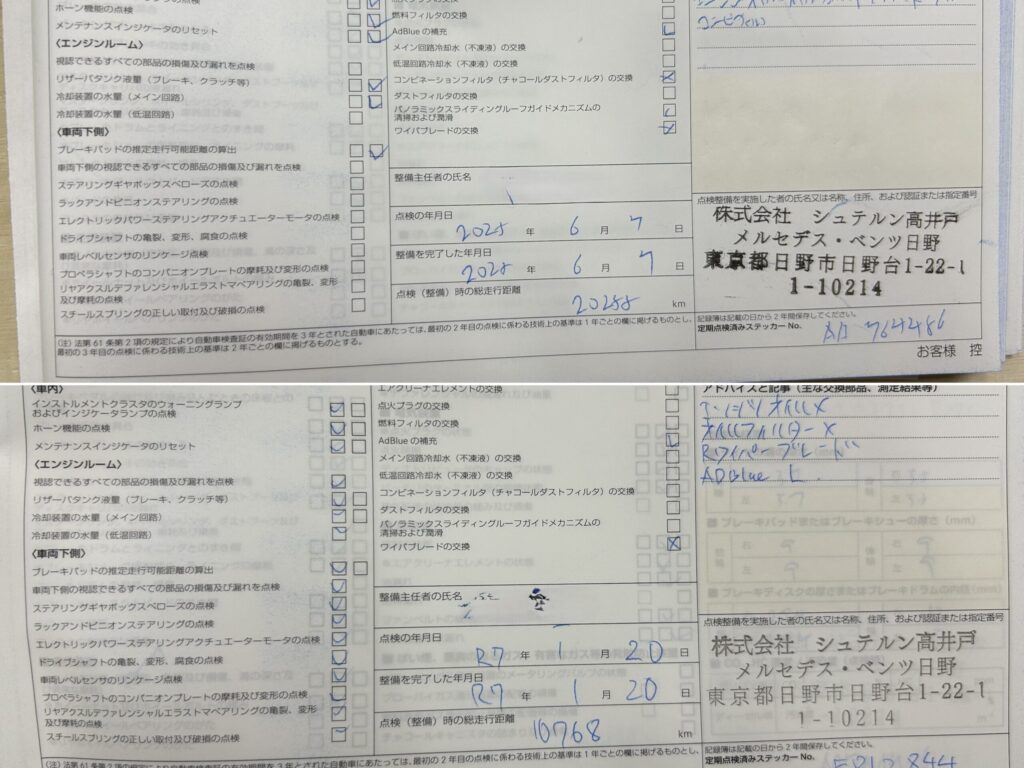 ホーン機能の点検
メンテナンスインジケータのリセット
〈エンジンルーム〉
視認できるすべての部品の損傷及び漏れを点検
リザーバタンク液量（ブレーキ、クラッチ等）
冷却装置の水量（メイン回路）
冷却装置の水量（低温回路）
〈車両下側〉
ブレーキパッドの推定走行可能距離の算出
車両下側の視認できるすべての部品の損傷及び漏れを点検
ステアリングギヤボックスベローズの点検
ラックアンドピニオンステアリングの点検
エレクトリックパワーステアリングアクチュエーターモータの点検
ドライブシャフトの亀裂、変形、腐食の点検
車両レベルセンサのリンケージ点検
プロペラシャフトのコンパニオンプレートの摩耗及び変形の点検
リヤアクスルデファレンシャルエラストマベアリングの亀裂、変形
及び摩耗の点検
スチールスプリングの正しい取付及び破損の点検
燃料フィルタの交換
AdBlueの補充
メイン回路冷却水（不凍液）の交換
低温回路冷却水（不凍液）の交換
コンビネーションフィルタ（チャコールダストフィルタ）の交換
ダストフィルタの交換
パノラミックスライディングルーフガイドメカニズムの
清掃および潤滑
ワイパブレードの交換
整備主任者の氏名
点検の年月日
2025 年 6 月 7 日
整備を完了した年月日
2025 年 6 月 7 日
点検（整備）時の総走行距離
20255 km
点検整備を実施した者の氏名又は名称、住所、および認証または指定番号
株式会社 シュテルン高井戸
メルセデス・ベンツ日野
東京都日野市日野台1-22-1
1-10214
記録簿は記載の日から2年間保存してください。
定期点検済みステッカーNo. AD 764486
（注）法第61条第2項の規定により自動車検査証の有効期間を3年とされた自動車にあたっては、最初の2年目の点検に係わる技術上の基準は1年ごとの欄に掲げるものとし、
最初の3年目の点検に係わる技術上の基準は2年ごとの欄に掲げるものとする。
お客様 控
〈車内〉
インストルメントクラスタのウォーニングランプ
およびインジケータランプの点検
ホーン機能の点検
メンテナンスインジケータのリセット
〈エンジンルーム〉
視認できるすべての部品の損傷及び漏れを点検
リザーバタンク液量（ブレーキ、クラッチ等）
冷却装置の水量（メイン回路）
冷却装置の水量（低温回路）
〈車両下側〉
ブレーキパッドの推定走行可能距離の算出
車両下側の視認できるすべての部品の損傷及び漏れを点検
ステアリングギヤボックスベローズの点検
ラックアンドピニオンステアリングの点検
エレクトリックパワーステアリングアクチュエーターモータの点検
ドライブシャフトの亀裂、変形、腐食の点検
車両レベルセンサのリンケージ点検
プロペラシャフトのコンパニオンプレートの摩耗及び変形の点検
リヤアクスルデファレンシャルエラストマベアリングの亀裂、変形
及び摩耗の点検
スチールスプリングの正しい取付及び破損の点検
エアクリーナエレメントの交換
点火プラグの交換
燃料フィルタの交換
AdBlueの補充
メイン回路冷却水（不凍液）の交換
低温回路冷却水（不凍液）の交換
コンビネーションフィルタ（チャコールダストフィルタ）の交換
ダストフィルタの交換
パノラミックスライディングルーフガイドメカニズムの
清掃および潤滑
ワイパブレードの交換
整備主任者の氏名
点検の年月日
R7 年 1 月 20 日
整備を完了した年月日
R7 年 1 月 20 日
点検（整備）時の総走行距離
10768 km
アドバイスと記事（主な交換部品、測定結果等）
エンジンオイルX
オイルフィルターX
Rワイパーブレード
ADBlue L
点検整備を実施した者の氏名又は名称、住所、および認証または指定番号
株式会社 シュテルン高井戸
メルセデス・ベンツ日野
東京都日野市日野台1-22-1
1-10214
記録簿は記載の日から2年間保存してください。
定期点検済みステッカーNo.